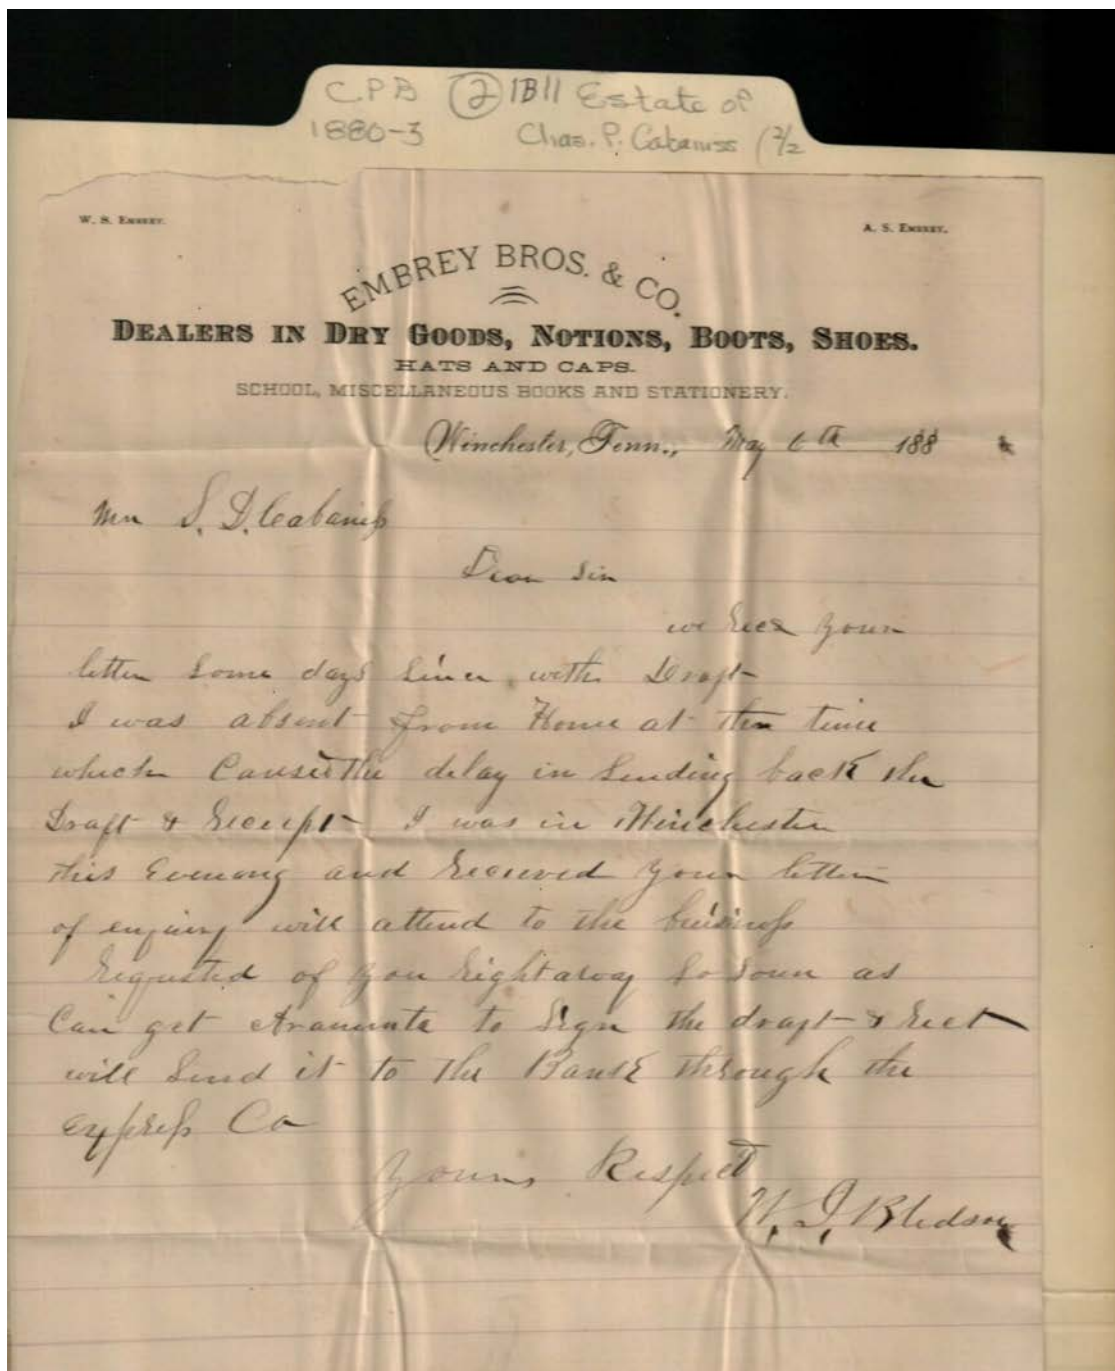 C.P.B ② 1B11 Estate of
1880-3 Chas. P. Cabaniss (2/2
W. S. EMBREY.
A. S. EMBREY.
EMBREY BROS. & CO.
DEALERS IN DRY GOODS, NOTIONS, BOOTS, SHOES.
HATS AND CAPS.
SCHOOL, MISCELLANEOUS BOOKS AND STATIONERY.
Winchester, Tenn., May 6th 188
Mr S. D. Cabaniss
Dear Sir
we Recd your
letter Some days Since with Draft
I was absent from Home at the time
which Caused the delay in Sending back the
Draft & Receipt I was in Winchester
this Evening and Received your letter
of enquiry will attend to the business
Requsted of you Rightaway So Soon as
Can get Araminta to Sign the draft & Rect
will Send it to the Bank through the
express Co
Yours Respect
W. J. Bledsoe